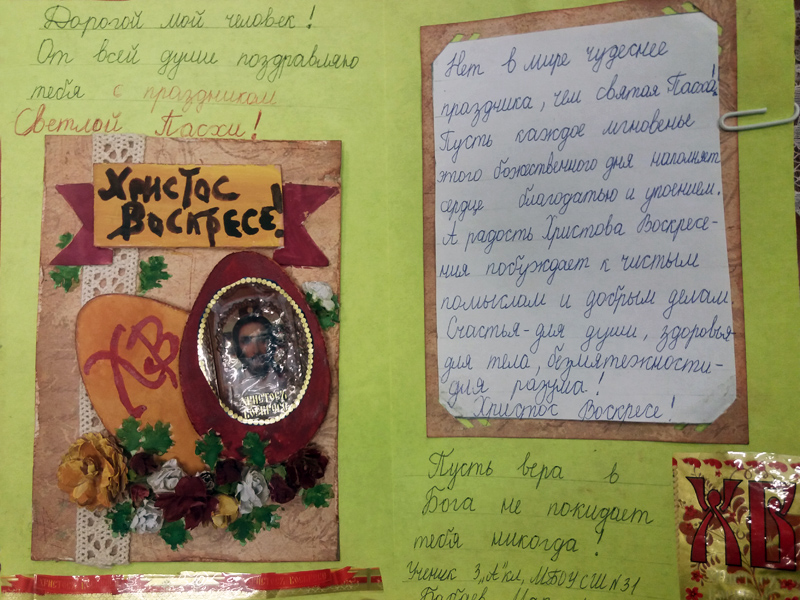 Дорогой мой человек!
От всей души поздравляю
тебя с праздником
Светлой Пасхи!
Христос
Воскресе!
ХВ
ХРИСТОС
ВОСКРЕСЕ
Нет в мире чудеснее
праздника, чем святая Пасха!
Пусть каждое мгновенье
этого божественного дня наполняет
сердце благодатью и упоением.
А радость Христова Воскресе-
ния побуждает к чистым
помыслам и добрым делам
Счастья-для души, здоровья-
для тела, безмятежности-
для разума!
Христос Воскресе!
Пусть вера в
Бога не покидает
тебя никогда!
Ученик 3 „А" кл, МБОУ СШ №31
ХВ